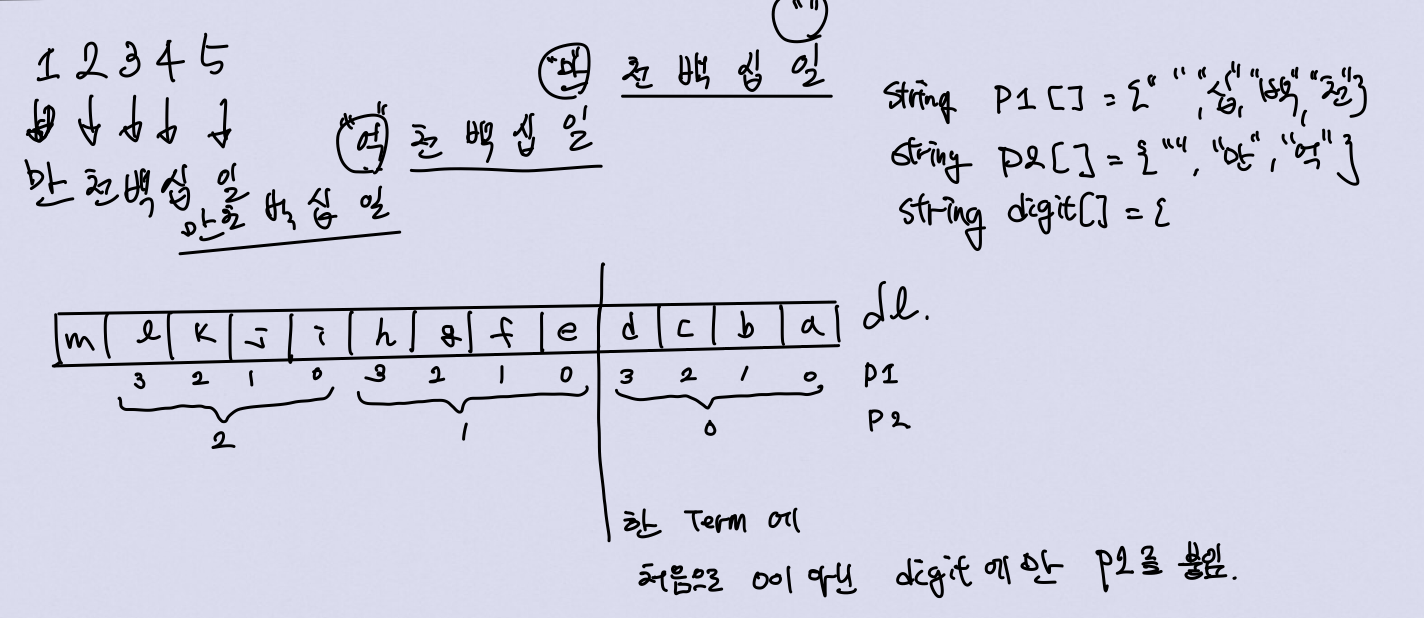 1 2 3 4 5
만 천 백 십 일
""
"만" 천 백 십 일
"억" 천 백 십 일
만천 백 십 일
string P1[] = {" ", "십", "백", "천"}
string P2[] = {"", "만", "억"}
string digit[] = {
m l k j i h g f e d c b a dl.
3 2 1 0 3 2 1 0 3 2 1 0 P1
2 1 0 P2
한 Term 에
처음으로 0이 아닌 digit 에 만 P2를 붙임.